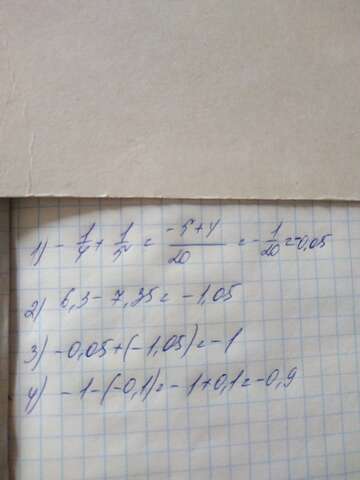 1) - 1/4 + 1/5 = (-5+4)/20 = - 1/20 = -0,05
2) 6,3 - 7,35 = -1,05
3) -0,05 + (-1,05) = -1
4) -1 - (-0,1) = -1 + 0,1 = -0,9